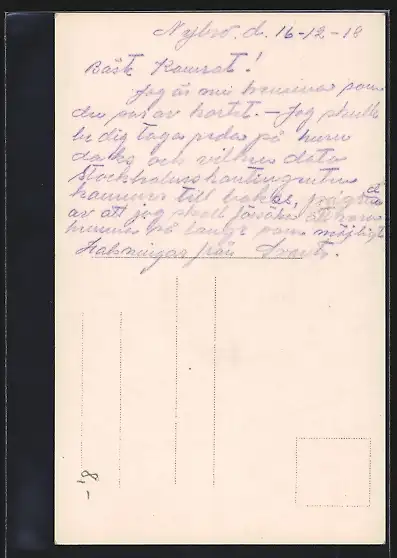 Nybro. d. 16-12-18
Bäste Kamrat!
Jag är nu hemma som
du ser av kortet. — Jag skulle
be dig taga reda på huru
dags och vilken data
Stockholmskontingenten
kommer till bakas,
av att jag skall försöka att vara
hemma så långt som möjligt
Hälsningar från
-8